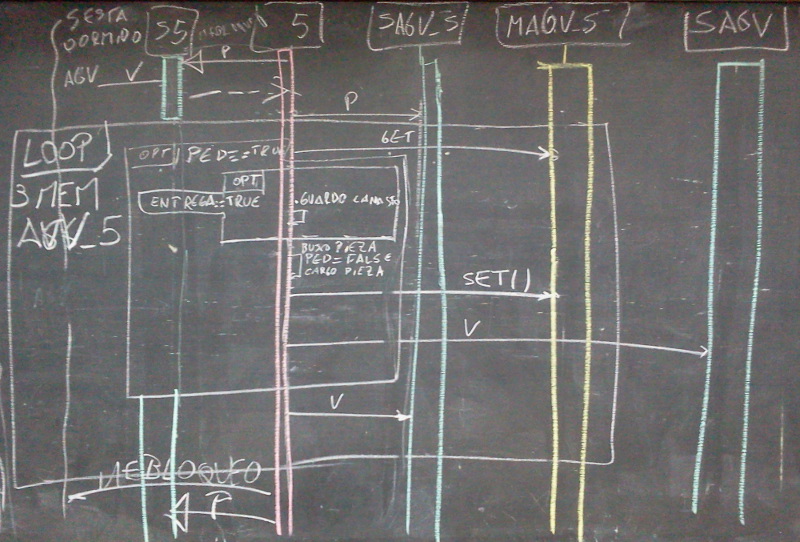 SESTA
DORMIDO
S5
5
SAGV_S
MAGV_5
SAGV
AGV
V
P
P
LOOP
3 MEM
AVV_5
OPT
PED==TRUE
GET
OPT
ENTREGA=TRUE
GUARDO CANASTO
BUSCO PIEZA
PED=FALSE
CARGO PIEZA
SET()
V
V
ME BLOQUEO
P